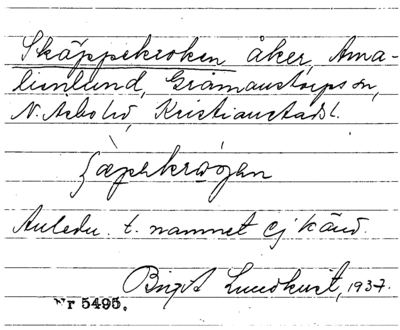 Skäppekroken åker, Ama-
lienlund, Gråmanstorps sn,
N. Åsbo hd, Kristianstads l.
ʃæpekrogen
Anledn. t. namnet ej känd.
Birgit Lundkvist, 1937.
Nr 5495.